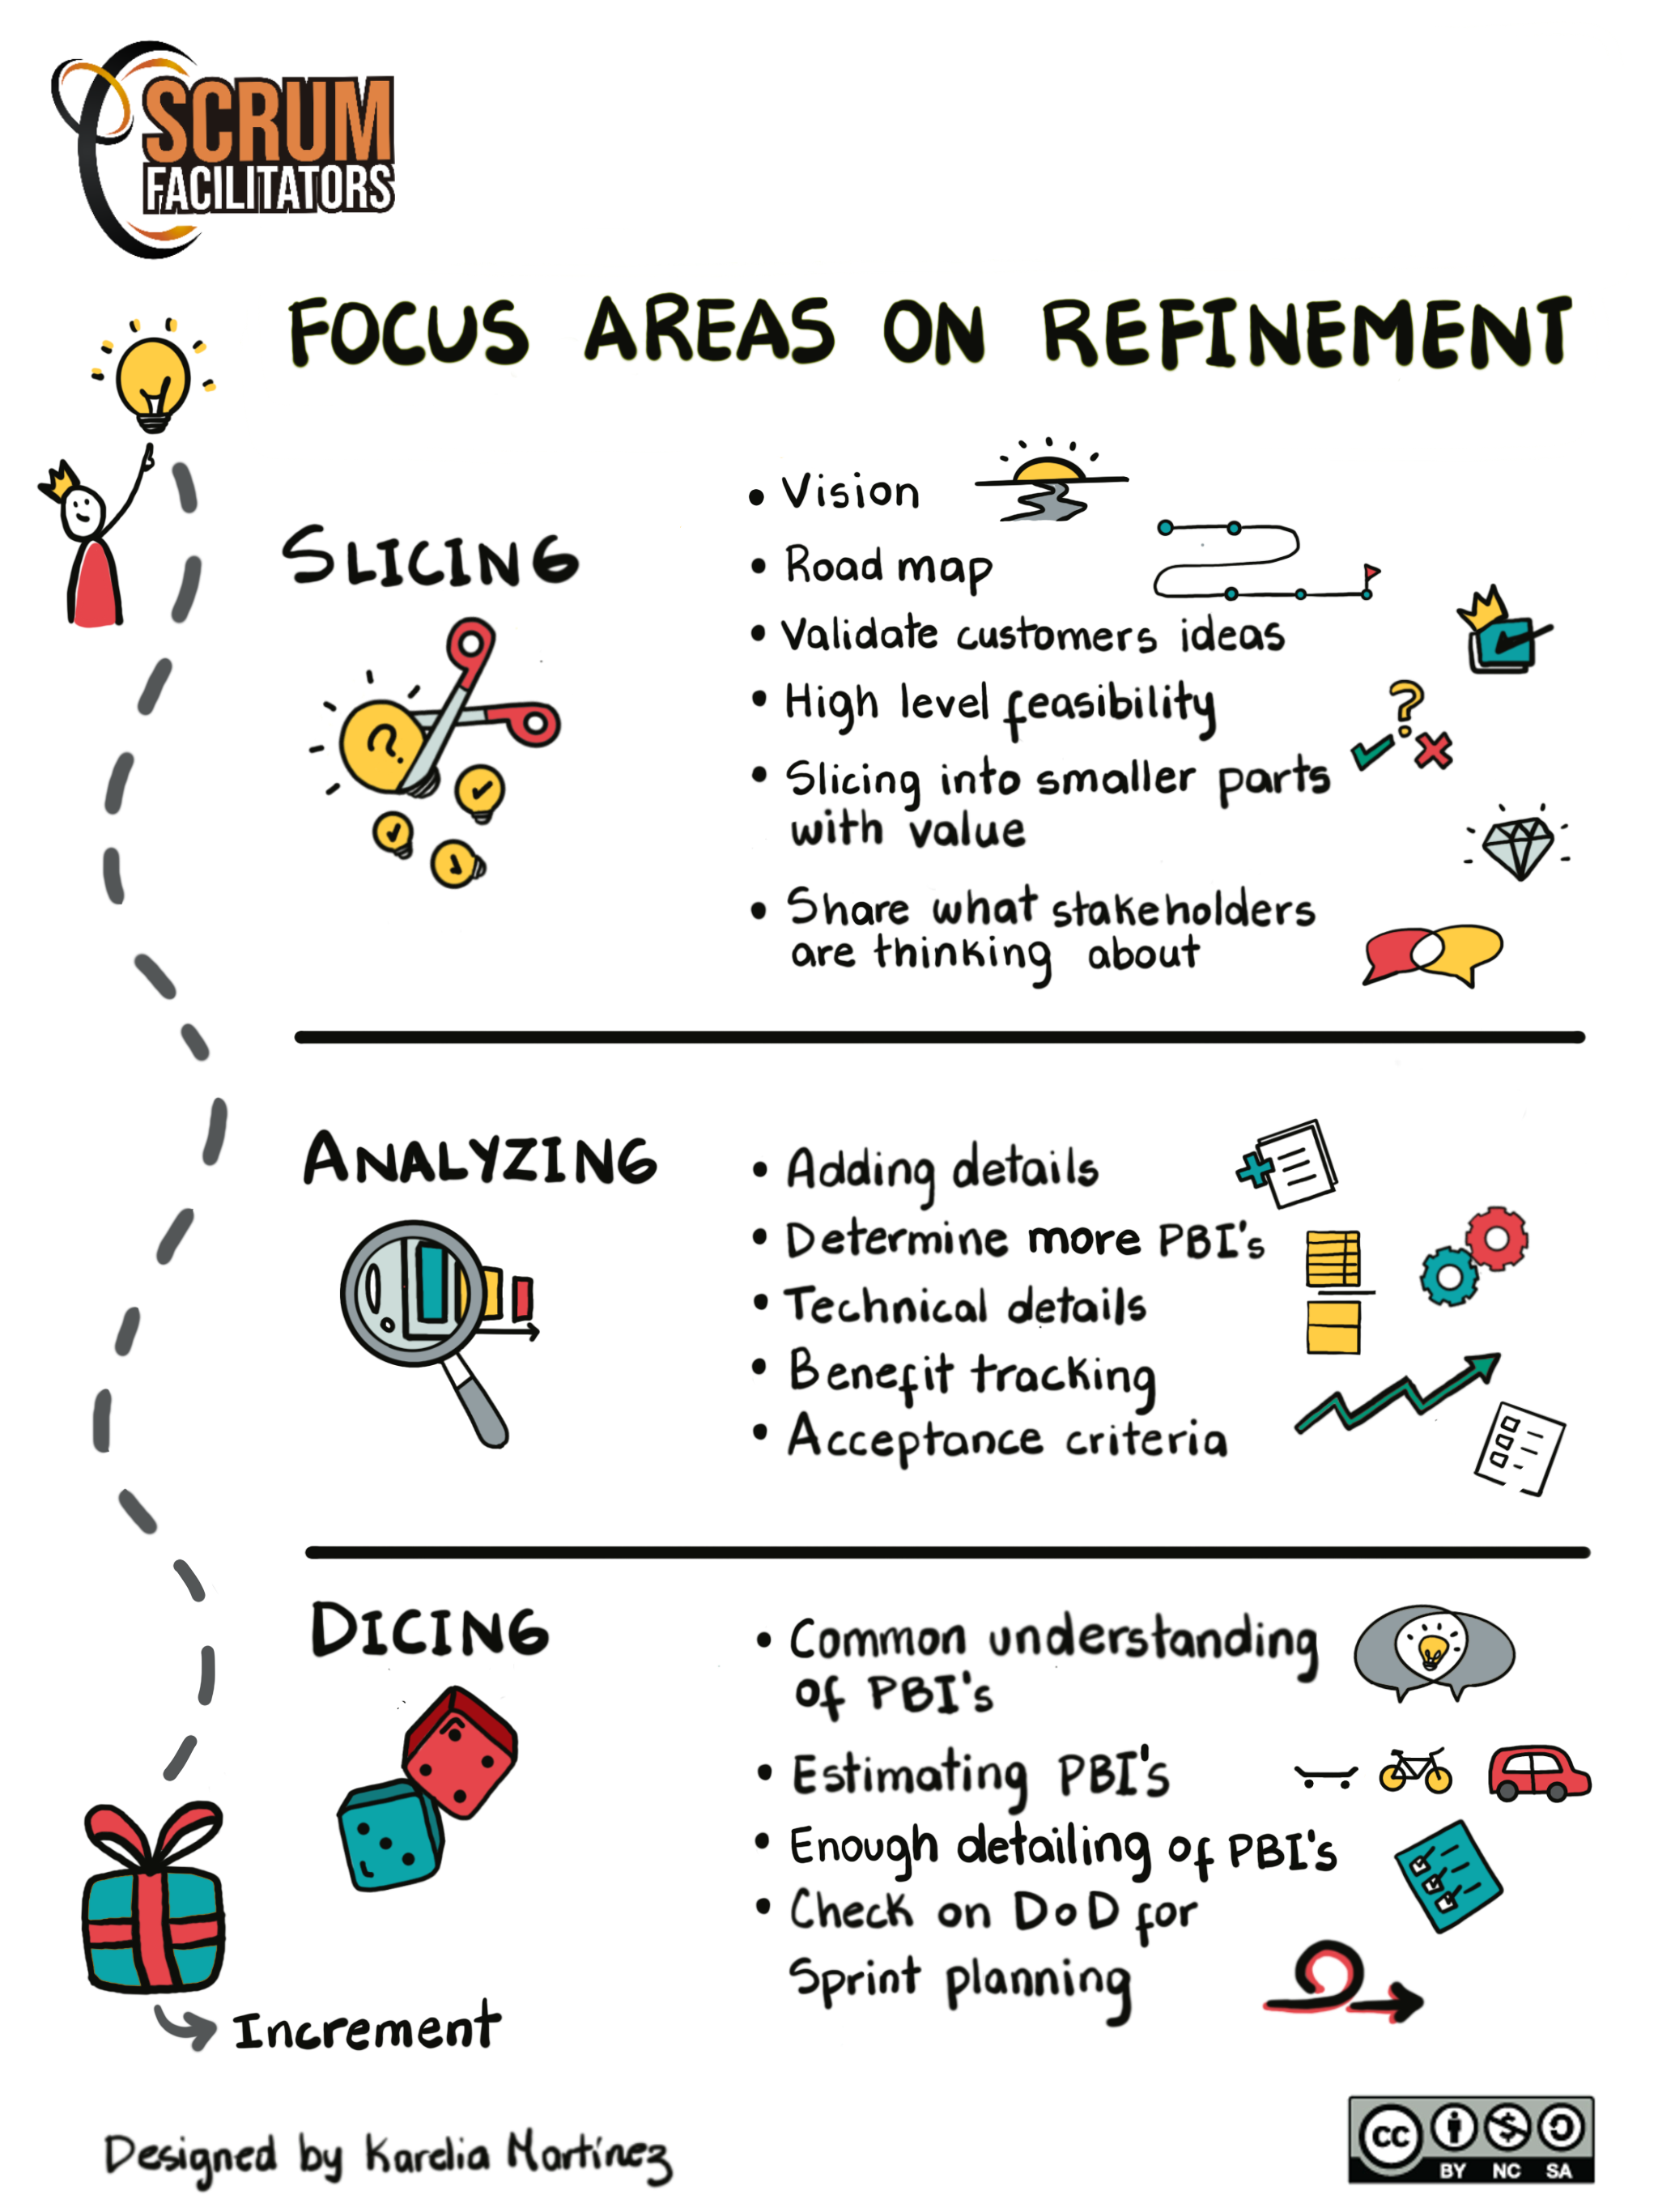 SCRUM
FACILITATORS
FOCUS AREAS ON REFINEMENT
SLICING
• Vision
• Road map
• Validate customers ideas
• High level feasibility
• Slicing into smaller parts
with value
• Share what stakeholders
are thinking about
ANALYZING
• Adding details
• Determine more PBI's
• Technical details
• Benefit tracking
• Acceptance criteria
DICING
• Common understanding
of PBI's
• Estimating PBI's
• Enough detailing of PBI's
• Check on DoD for
Sprint planning
Increment
Designed by Karelia Martínez
cc
BY NC SA